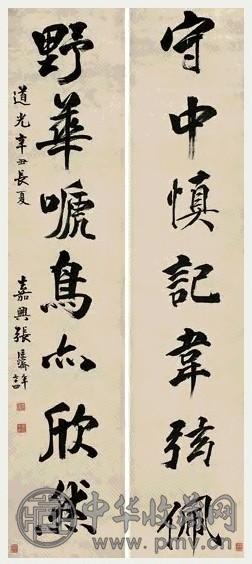 守中慎記韋弦佩
野華嗁鳥亦欣然
道光辛丑長夏
嘉興張廷濟
中华收藏网
www.pmv.cn